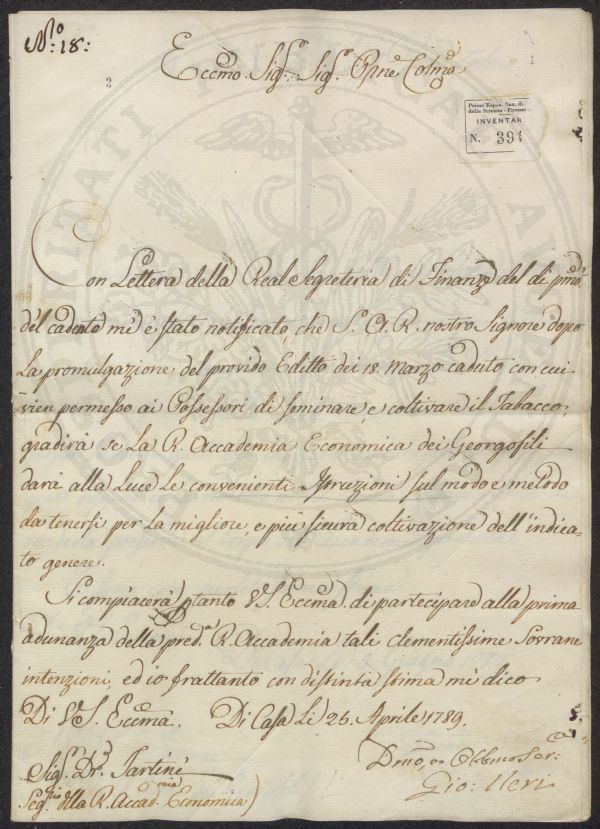 N.o 18:
2
1
Eccmo Sig.r Sig.r Pne Colmo
Primà Espos. Naz. di
della Scienza - Firenze
INVENTAR
N. 391
Con Lettera della Real Segreteria di Finanze del dì pmo
del caduto mi è stato notificato, che S. A. R. nostro Signore dopo
La promulgazione del provido Editto dei 18. Marzo caduto con cui
vien permesso ai Possessori di seminare, e coltivare il Tabacco,
gradirà se La R. Accademia Economica dei Georgofili
darà alla Luce Le convenienti Istruzioni sul modo e metodo
da tenersi per La migliore, e più sicura coltivazione dell'indica-
to genere.
Si compiacerà ptanto VS. Eccma. di partecipare alla prima
adunanza della pred.a R. Accademia tali clementissime Sovrane
intenzioni, ed io frattanto con distinta stima mi dico
Di VS. Eccma. Di Casa Li 25. Aprile 1789.
Sig.r Dr. Tartini
Seg.rio della R. Accad.mia Economica)
Dmo, ed Obbmo Ser.e
Gio: Neri